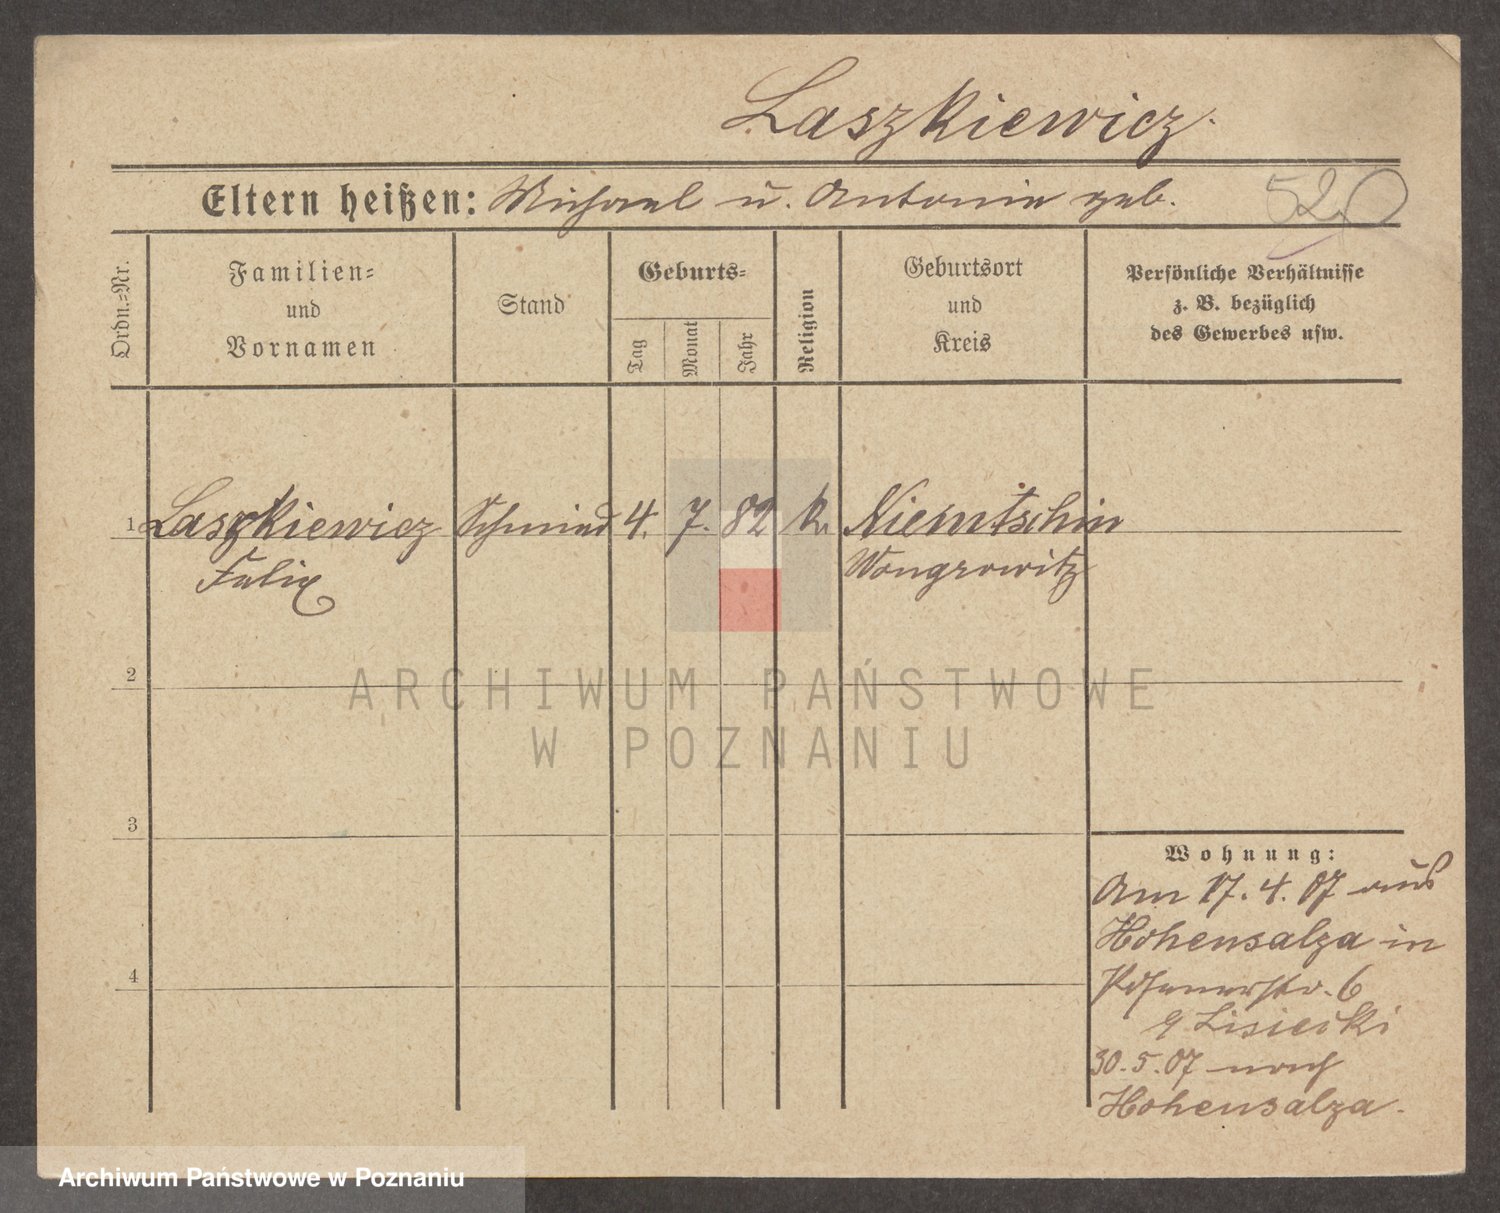 Laszkiewicz.
Eltern heißen: Michael u. Antonie geb.
Ordn.=Nr.
Familien=
und
Vornamen
Stand
Geburts=
Tag
Monat
Jahr
Religion
Geburtsort
und
Kreis
Persönliche Verhältnisse
z. B. bezüglich
des Gewerbes usw.
1 Laszkiewicz Schmied 4. 7. 82 k. Niemtschin
Felix Wongrowitz
2
ARCHIWUM PAŃSTWOWE
W POZNANIU
3
Wohnung:
Am 17.4.07 aus
Hohensalza in
Posenerstr. 6
Lisiecki
4
30.5.07 nach
Hohensalza.
Archiwum Państwowe w Poznaniu